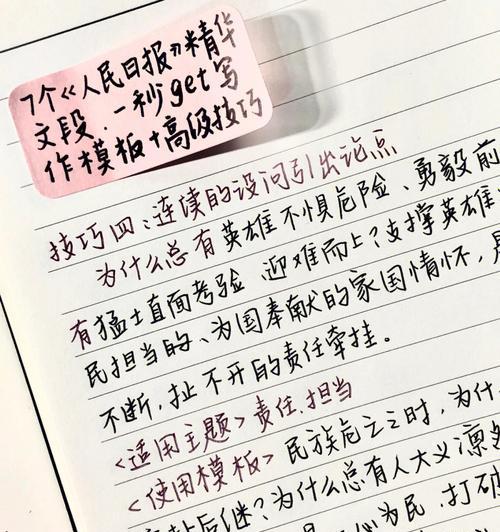 7个《人民日报》精华
文段.一秒get写
作模板+高级技巧
技巧四、连续的设问引出论点
为什么总有英雄不惧危险、勇毅前
有猛士直面考验、迎难而上?支撑英雄
民担当的、为国奉献的家国情怀,是
不断,扯不开的责任牵挂。
<适用主题>责任.担当
<使用模板>民族危亡之时,为什
后继?为什么总有人大义凛
为民,打破